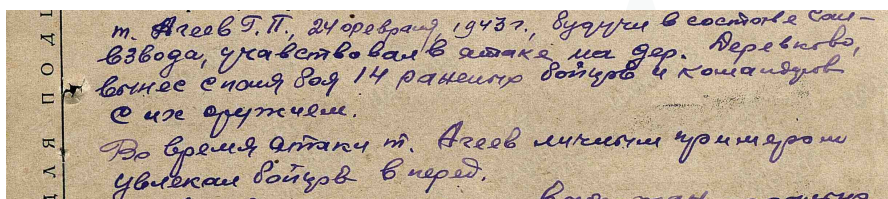 т. Агеев Г.П., 24 февраля, 1943 г., будучи в составе сан-
взвода, учавствовал в атаке на дер. Деревково,
вынес с поля боя 14 раненых бойцов и командиров
с их оружием.
Во время атаки т. Агеев личным примером
увлекал бойцов в перед.
ЛЯ ПОДІ